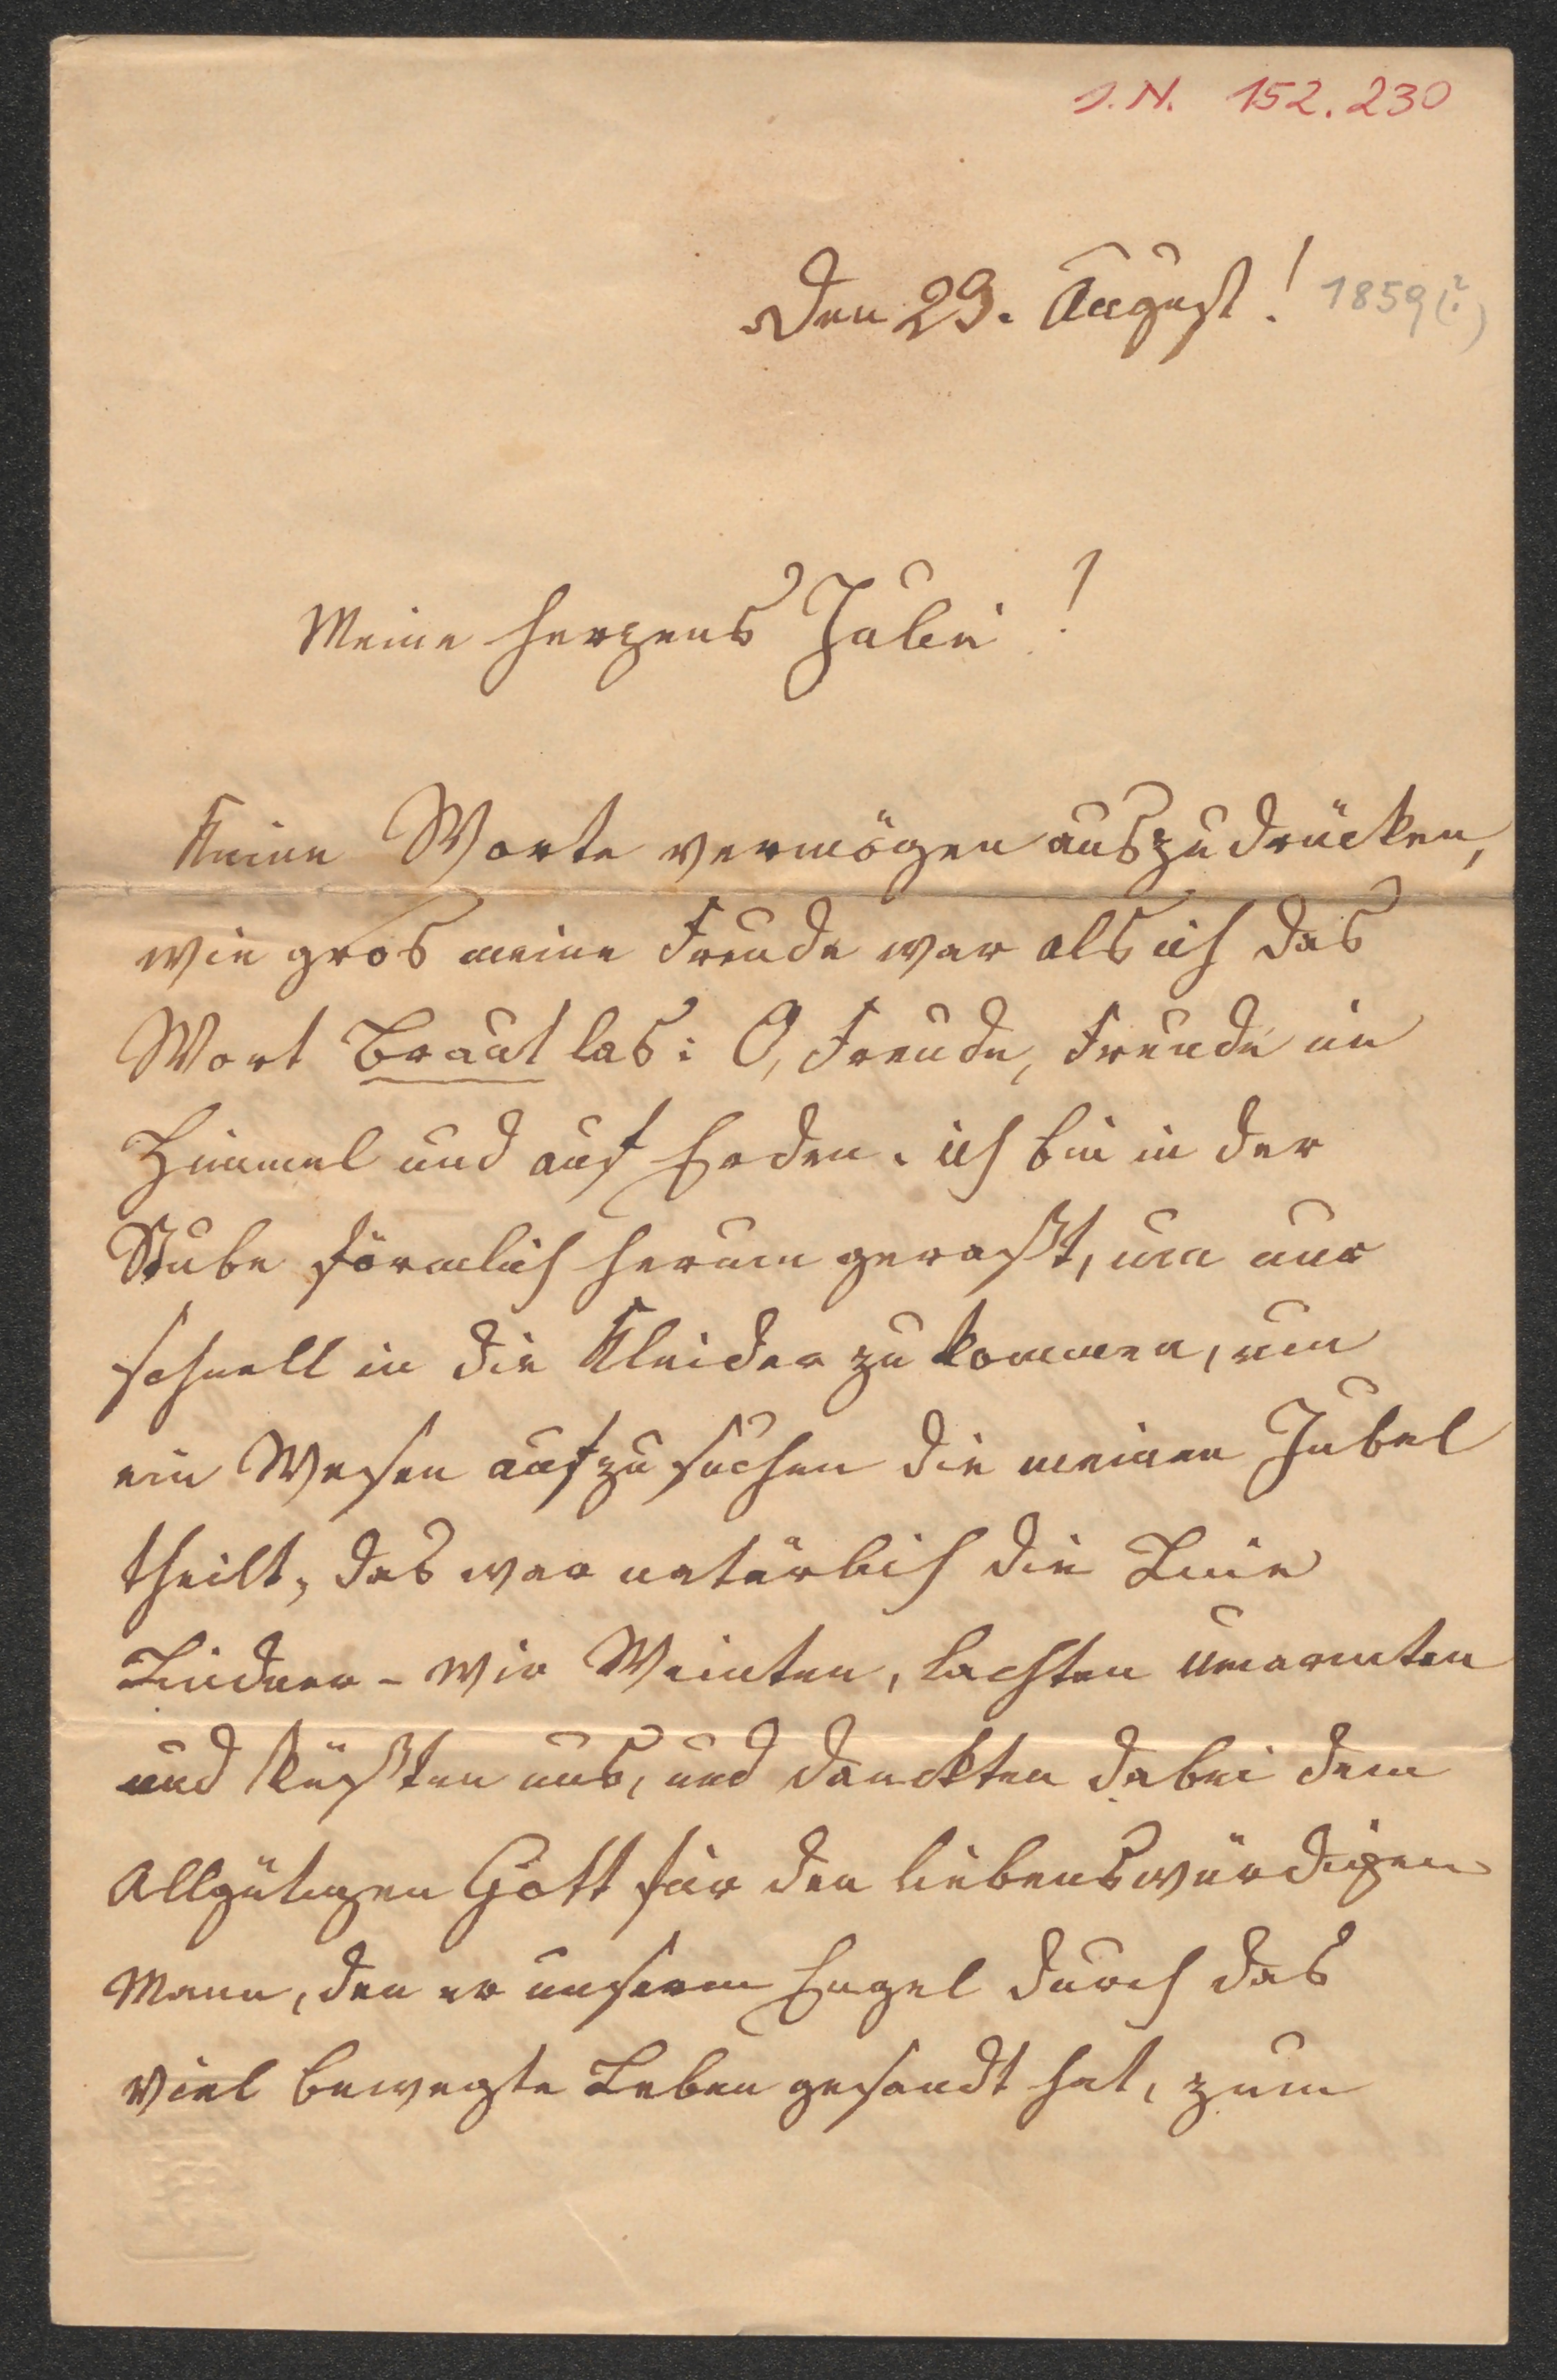 I.N. 152.230
Den 29. August! 1859(?)
Meine Herzens Julei!
Keine Worte vermögen auszudrücken,
wie gros meine Freude war als ich das
Wort Braut las: O, Freude, Freude im
Himmel und auf Erden. ich bin in der
Stube förmlich herum gerast, um nur
schnell in die Kleider zu kommen, um
ein Wesen aufzusuchen die meinen Jubel
theilt, das war natürlich die
Lindner - wir Weinten, lachten umarmten
und küßten uns, und danckten dabei dem
Allgütigen Gott für den liebenswürdigen
Mann, den er unserem Engel durch das
viel bewegte Leben gesandt hat, zum